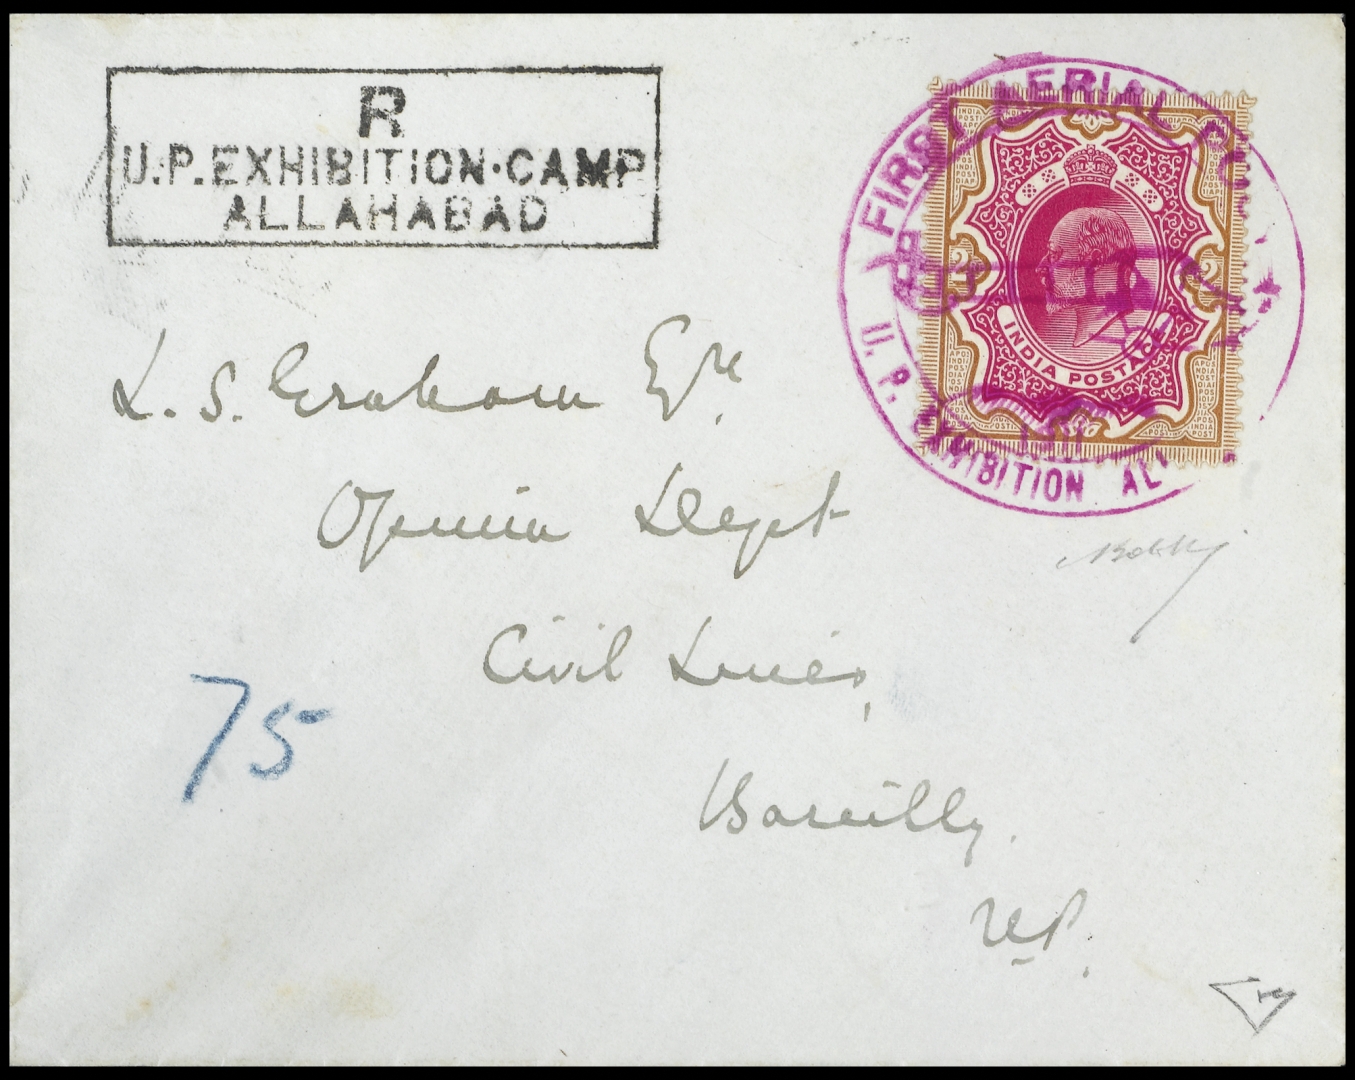 R
U.P.EXHIBITION·CAMP
ALLAHABAD
FIRST AERIAL PO
U. P. EXHIBITION ALL
1911
2
2
INDIA POSTAGE
L. S. Graham Esqre.
Opium Dept
Civil Lines,
Bareilly.
U.P.
75